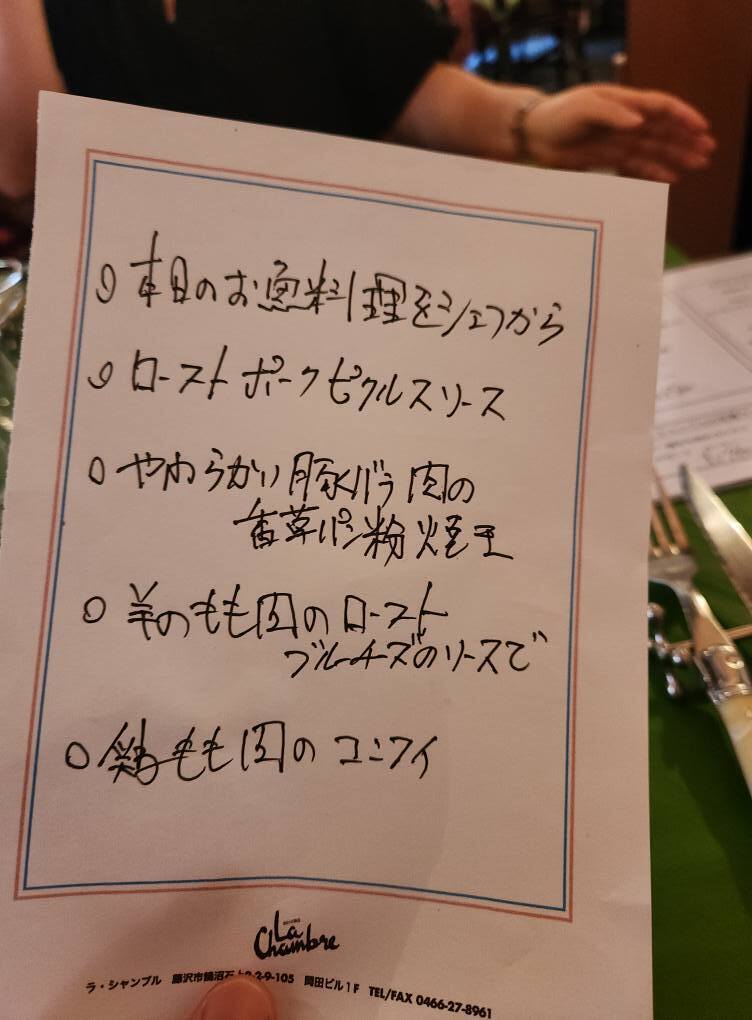 ○ 本日のお魚料理をシェフから
○ ローストポークピクルスソース
○ やわらかい豚バラ肉の
香草パン粉焼き
○ 羊のもも肉のロースト
ブルーチーズのソースで
○ 鶏もも肉のコンフィ
La
Chambre
ラ・シャンブル 藤沢市鵠沼石上2-9-105 岡田ビル1F TEL/FAX 0466-27-8961